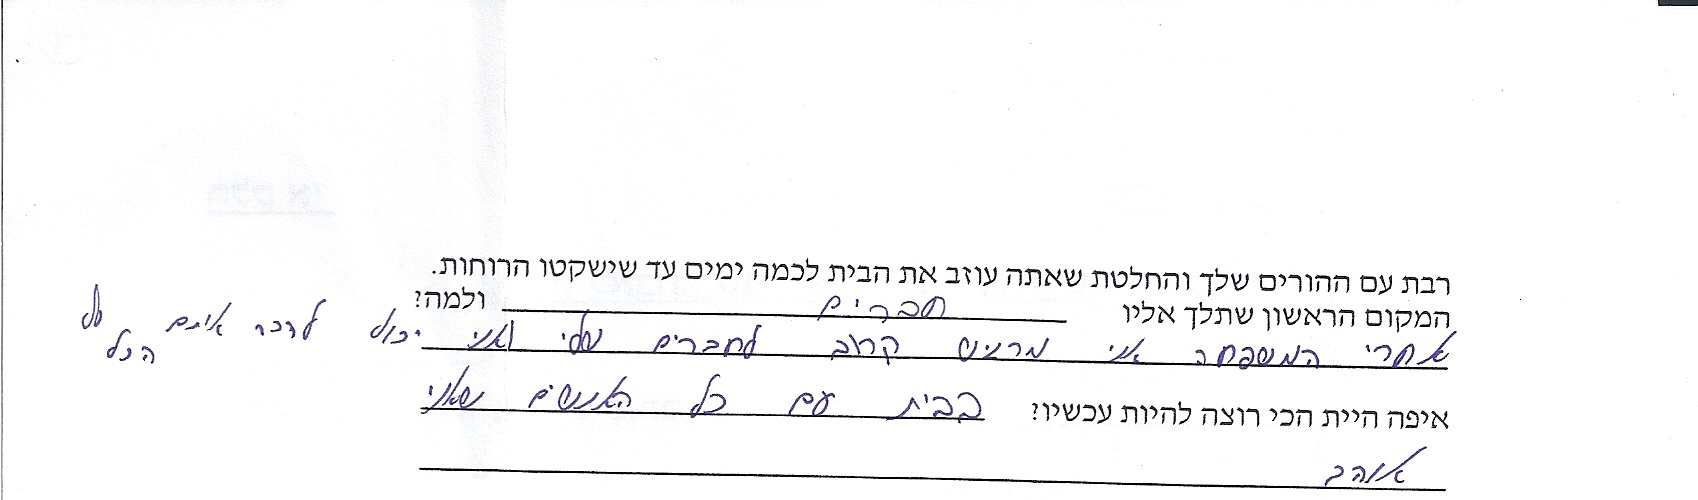 רבת עם ההורים שלך והחלטת שאתה עוזב את הבית לכמה ימים עד שישקטו הרוחות.
המקום הראשון שתלך אליו חברים ולמה?
אחרי המשפחה אני מרגיש קרוב לחברים שלי ואני יכול לדבר איתם על
הכל
איפה היית הכי רוצה להיות עכשיו? בבית עם כל האנשים שאני
אוהב